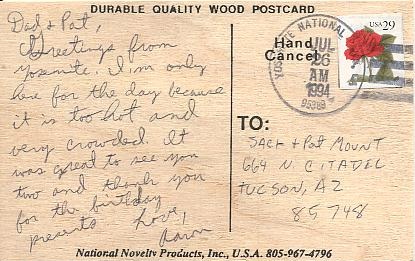 DURABLE QUALITY WOOD POSTCARD
Dad & Pat,
Greetings from
Yosemite. I'm only
here for the day because
it is too hot and
very crowded. It
was great to see you
two and thank you
for the birthday
presents Love,
Aaron
Hand
Cancel
YOSEMITE NATIONAL
JUL
26
AM
1994
95389
USA 29
TO:
Jack & Pat Mount
664 N. CITADEL
TUCSON, AZ
85748
National Novelty Products, Inc., U.S.A. 805-967-4796